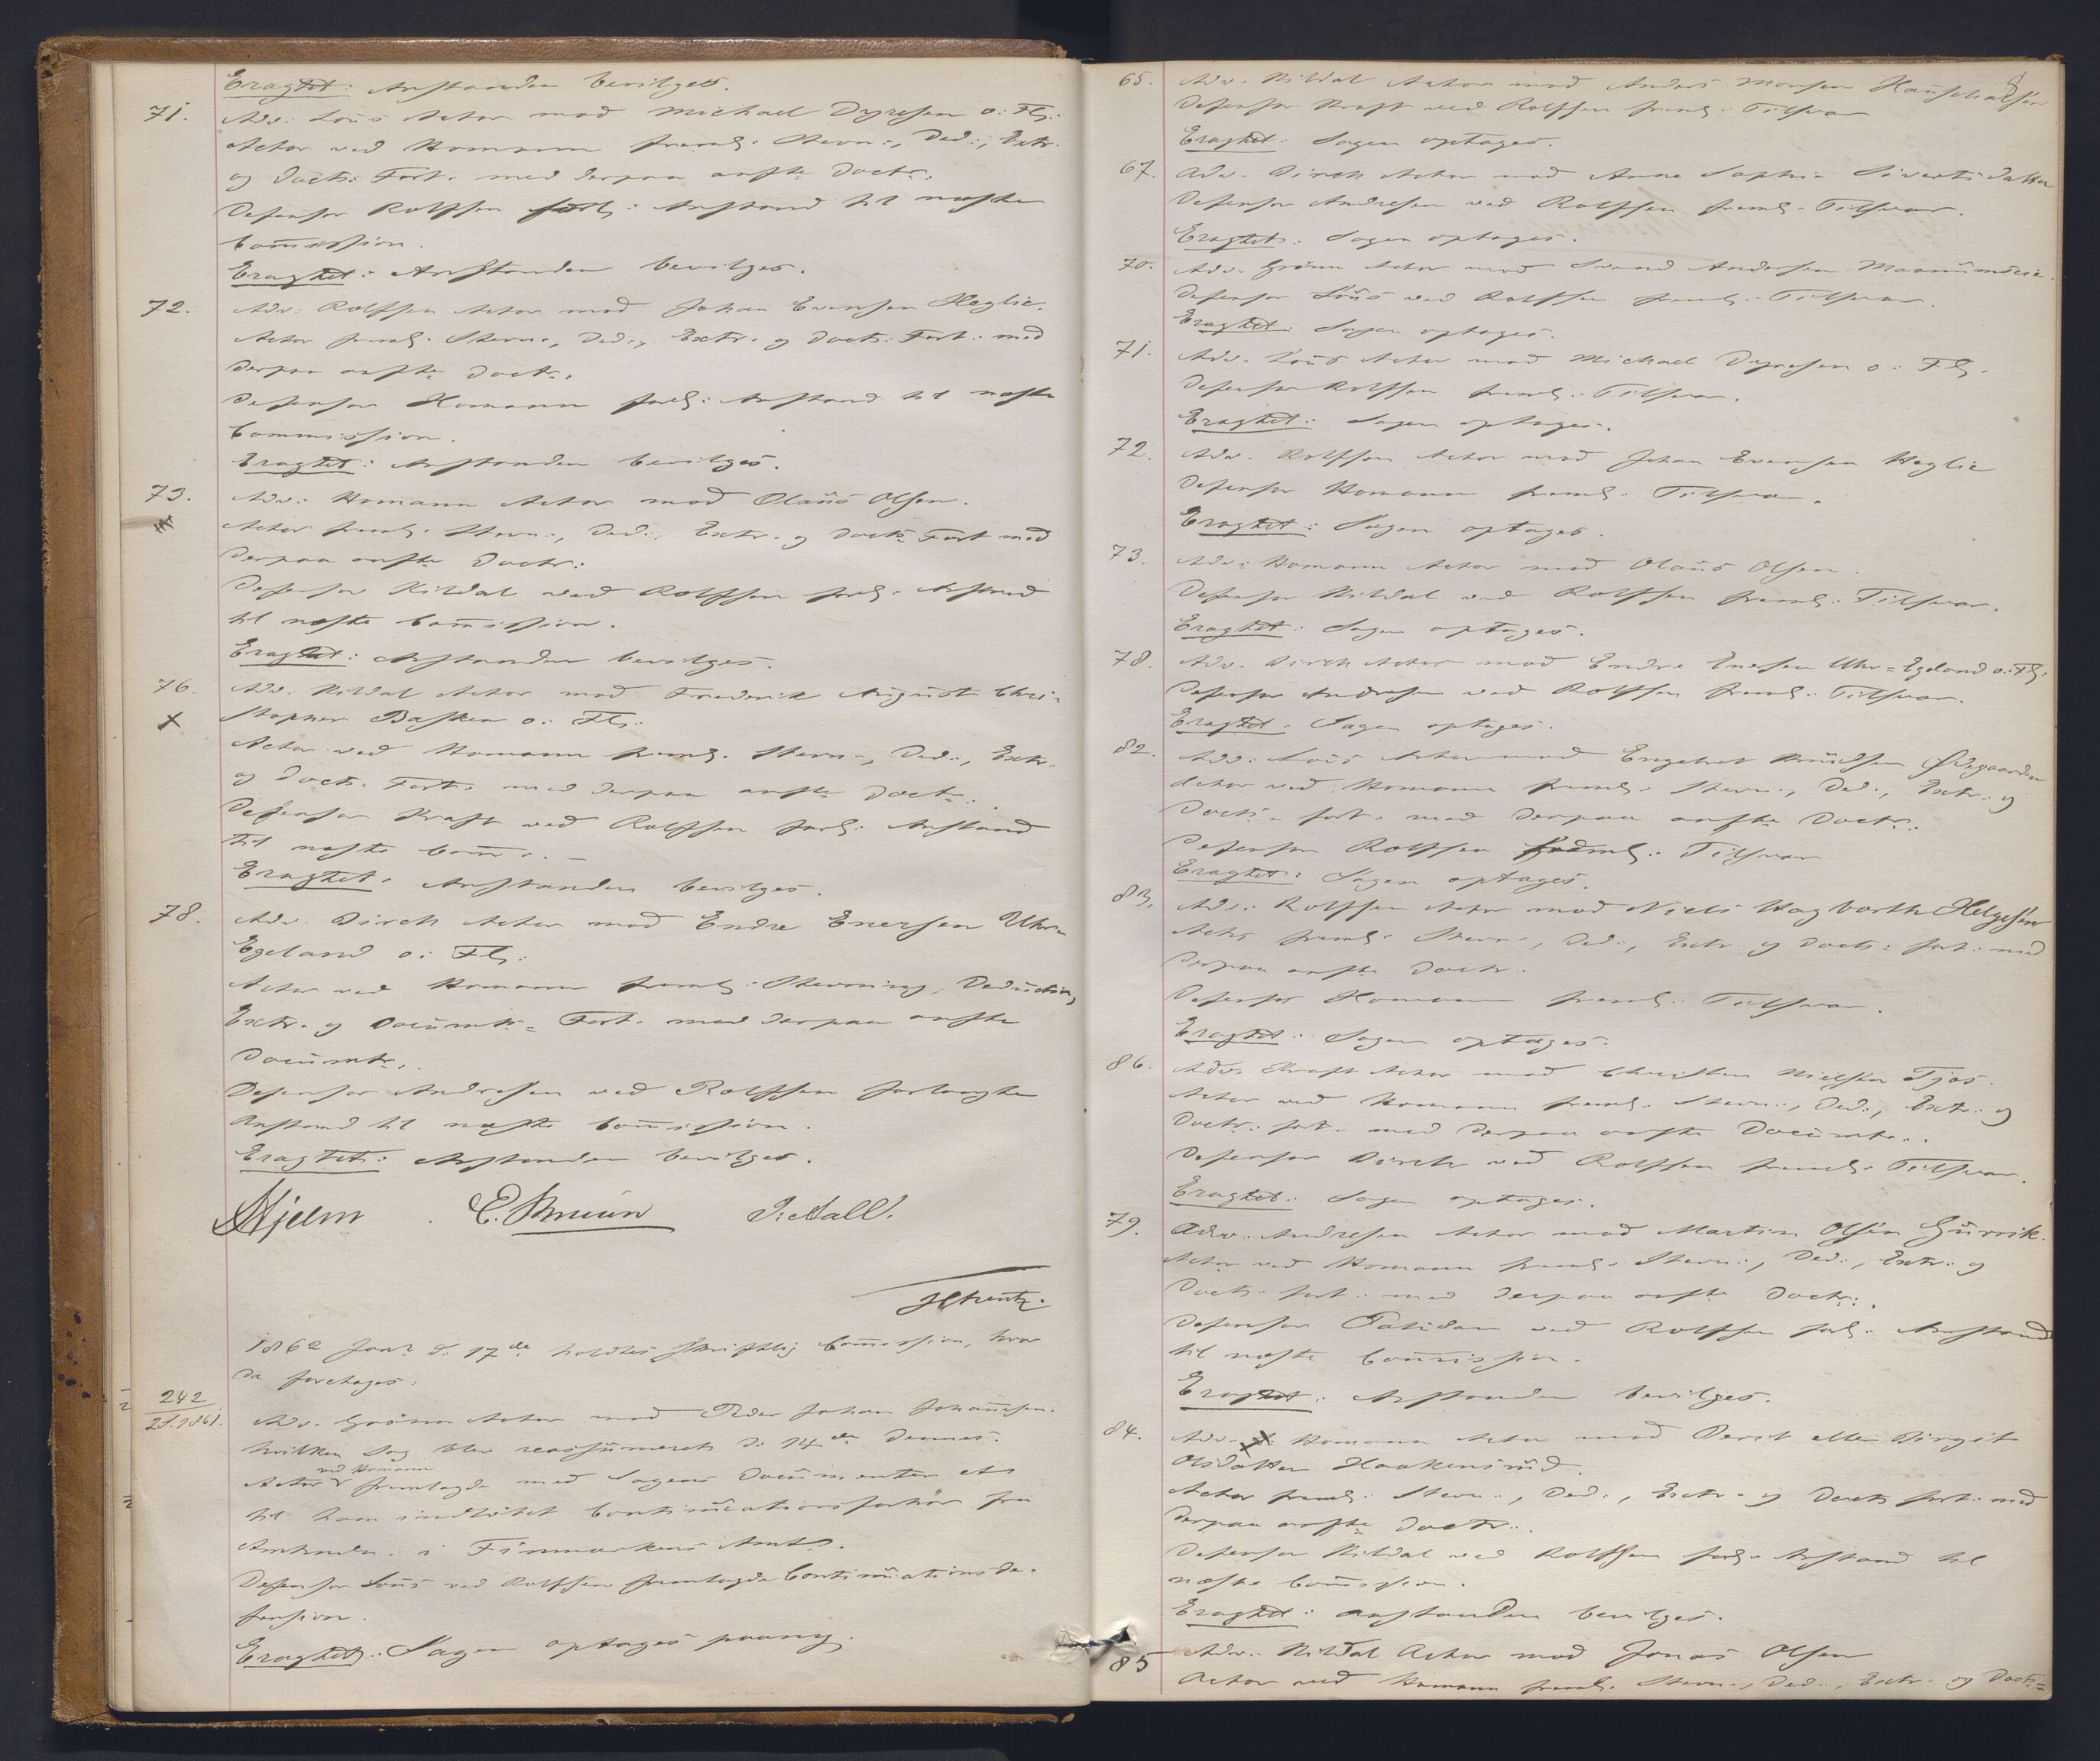 Eragtet: Anstanden bevilges.
71. Adv: Lous Actor mod Michael Dyresen o: Fl:
Actor ved Homann freml: Stevn:, Ded:, Extr:
og Docts: Fort. med derpaa anfte Doctr:
Defensor Rolffsen forl: Anstand til næste
Commission.
Eragtet: Anstanden bevilges.
72. Adv: Rolffsen Actor mod Johan Evensen Hoglie.
Actor freml: Stevn:, Ded:, Extr: og Docts: Fort: med
derpaa anfte Doctr.
Defensor Homann forl: Anstand til næste
Commission.
Eragtet: Anstanden bevilges.
73. Adv: Homann Actor mod Olaus Olsen.
Actor freml: Stevn:, Ded:, Extr: og Docts Fort med
derpaa anfte Doctr:
Defensor Kildal ved Rolffsen forl: Anstand
til næste Commission.
Eragtet: Anstanden bevilges.
76. Adv: Kildal Actor mod Frederik August Chri-
stopher Basken o: Fl:
Actor ved Homann freml: Stevn:, Ded:, Extr:
og Docts. Fort. med derpaa anfte Doctr:
Defensor Kraft ved Rolffsen forl: Anstand
til næste Comm:
Eragtet: Anstanden bevilges.
78. Adv. Dirch Actor mod Endre Enersen Uhr-
Egeland o: Fl:
Actor ved Homann freml: Stevning, Deduction,
Extr: og Documts= Fort. med derpaa anfte
Documtr.
Defensor Andresen ved Rolffsen forlangte
Anstand til næste Commission.
Eragtet: Anstanden bevilges.
Hjelm E. Bruun J. Aall.
1862 Janr d: 17de holdtes skriftlig Commission, hvor
da foretoges:
242
28. 1861. Adv. Grönn Actor mod Peder Johan Johannesen.
hvilken Sag blev reassumeret d: 14de dennes.
Actor ved Homann fremlagde med Sagens Documenter et
til ham indløbet Continuationsforhör fra
Amtmdn: i Finmarkens Amt.
Defensor Lous ved Rolffsen fremlagde Continuationsde-
fension.
Eragtet: Sagen optages paany.
65. Adv. Kildal Actor mod Anders Monsen
Defensor Kraft ved Rolffsen freml: Tilsvar
Eragtet: Sagen optages.
67. Adv. Dirch Actor mod Anne Sophie Sivertsdatter
Defensor Andresen ved Rolffsen freml: Tilsvar.
Eragtet: Sagen optages.
70. Adv. Grönn Actor mod Svend Andersen
Defensor Lous ved Rolffsen freml: Tilsvar.
Eragtet: Sagen optages.
71. Adv. Lous Actor mod Michael Dyresen o: Fl.
Defensor Rolffsen freml: Tilsvar.
Eragtet: Sagen optages.
72. Adv. Rolffsen Actor mod Johan Evensen Hoglie
Defensor Homann freml: Tilsvar.
Eragtet: Sagen optages.
73. Adv: Homann Actor mod Olaus Olsen.
Defensor Kildal ved Rolffsen freml: Tilsvar.
Eragtet: Sagen optages.
78. Adv. Dirch Actor mod Endre Enersen Uhr=Egeland o: Fl:
Defensor Andresen ved Rolffsen freml: Tilsvar.
Eragtet: Sagen optages.
82. Adv: Lous Actor mod Engebret Knudsen Ødegaarden
Actor ved Homann freml: Stevn:, Ded:, Extr: og
Docts: fort. med derpaa anfte Doctr.
Defensor Rolffsen freml: Tilsvar
Eragtet: Sagen optages.
83. Adv: Rolffsen Actor mod Niels Hagbarth Helgesen
Actor freml: Stevn:, Ded:, Extr: og Docts: fort: med
derpaa anfte Doctr.
Defensor Homann freml: Tilsvar.
Eragtet: Sagen optages.
86. Adv: Kraft Actor mod Christen Nielsen Tjos.
Actor ved Homann freml: Stevn:, Ded:, Extr: og
Docts: fort. med derpaa anfte Documtr.
Defensor Dirch ved Rolffsen freml: Tilsvar.
Eragtet: Sagen optages.
79. Adv. Andresen Actor mod Martin Olsen
Actor ved Homann freml: Stevn:, Ded:, Extr: og
Docts fort: med derpaa anfte Doctr:
Defensor ved Rolffsen forl: Anstand
til næste Commission.
Eragtet: Anstanden bevilges.
84. Adv. Homann Actor mod Berit eller Birgit
Olsdatter Haakensrud.
Actor freml: Stevn:, Ded:, Extr: og Docts fort: med
derpaa anfte Doctr:
Defensor Kildal ved Rolffsen forl: Anstand til
næste Commission.
Eragtet: Anstanden bevilges.
85 Adv: Kildal Actor mod Jonas Olsen
Actor ved Homann freml: Stevn:, Ded:, Extr: og Docts=